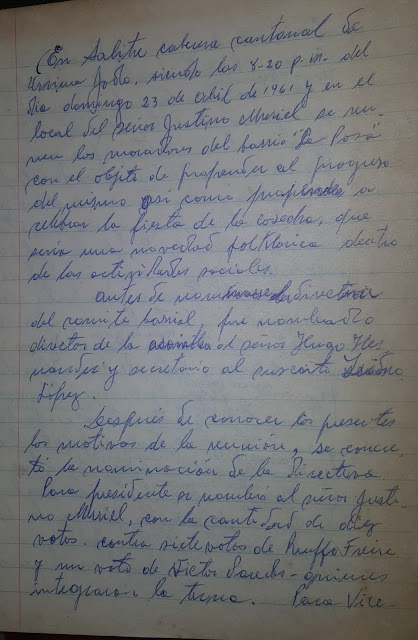 (En Salitre cabecera cantonal de
Urbina Jado, siendo las 8-20 p.m. del
dia domingo 23 de abril de 1961 y en el
local del señor Justino Muriel se reu
nen los moradores del barrio "La Posa"
con el objeto de propender al progreso
del mismo así como a
celebrar la fiesta de la cosecha, que
sería una novedad folklórica dentro
de las actividades sociales.
Antes de directiva
del comite barrial, fue nombrado
director de la asamblea el señor Hugo Her
nandez y secretario al suscrito
López.
Después de conocer los presentes
los motivos de la reunión, se concre
tó la nominación de la directiva.
Para presidente se nombró al señor Justi
no Muriel, con la cantidad de diez
votos contra siete votos de Ruffo Freire
y un voto de Victor Paredes - quienes
integraron la terna. Para Vice-